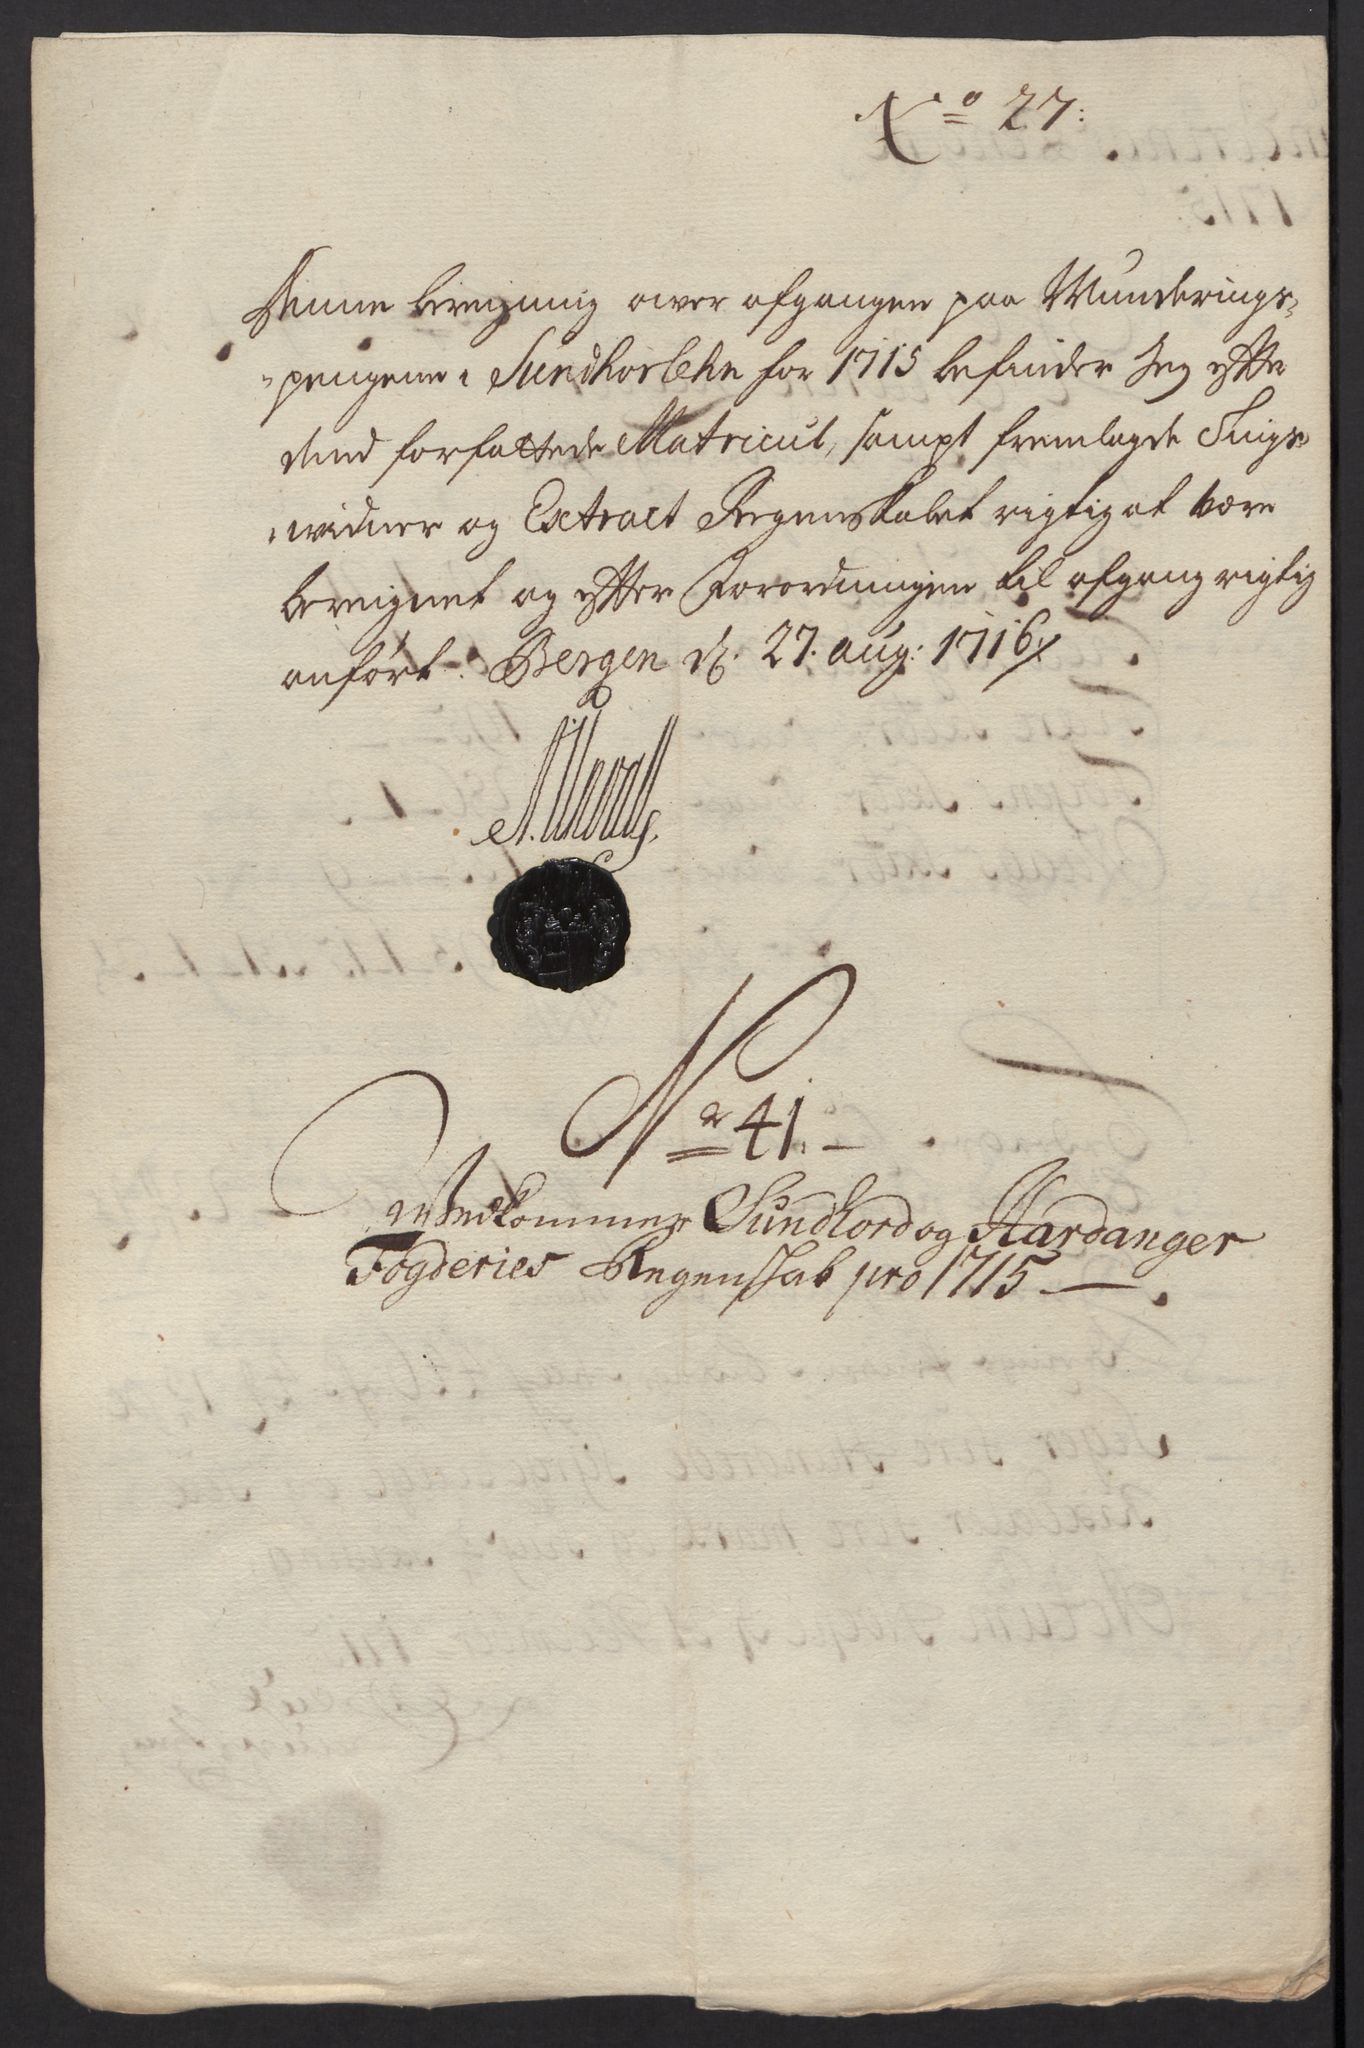 No 27:
Denne bereigning ower afgangen paa Munderings-
-pengene i Sundhorlehn for 1715 befinder Jeg efter
dend forfattede Matricul, sampt fremlagde Tings-
-widner og Extract Regenskabet rigtig at være
bereignet og efter Forordningen til afgang rigtig
anført. Bergen d. 27. aug: 1716
No 41.
Vedkommer Sundhord og Hardanger
Fogderies Regenskab pro 1715